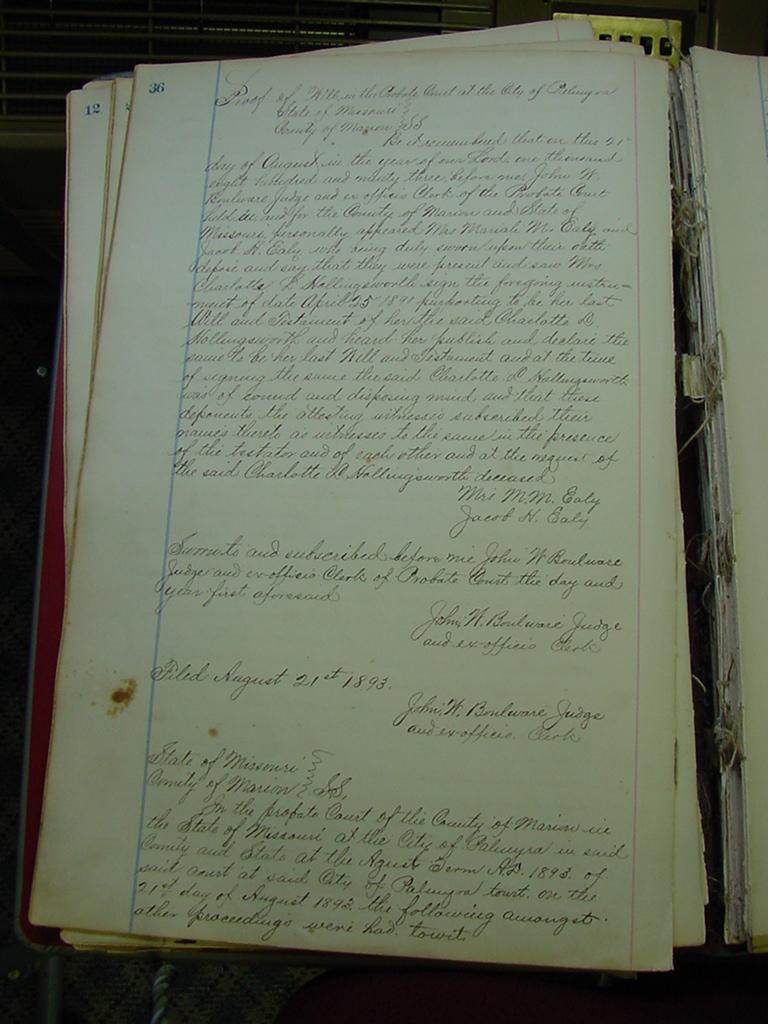 12
36
Proof of Will, in the Probate Court at the City of Palmyra
State of Missouri
County of Marion SS
Be it remembered that on this 21st
day of August, in the year of our Lord, one thousand
eight hundred and ninety three, before me, John W.
Boulware Judge and ex officio Clerk of the Probate Court
held in and for the County of Marion and State of
Missouri, personally appeared Mrs M. Ealy, and
Jacob H. Ealy who being duly sworn upon their oath
depose and say that they were present and saw Mrs
Charlotte D. Hollingsworth sign the foregoing instru-
ment of date April 25th 1891 purporting to be her last
Will and Testament of her the said Charlotte D.
Hollingsworth and heard her publish and declare the
same to be her last Will and Testament and at the time
of signing the same the said Charlotte D. Hollingsworth
was of sound and disposing mind and that these
deponents, the attesting witnesses subscribed their
names thereto as witnesses to the same in the presence
of the testator and of each other and at the request of
the said Charlotte D. Hollingsworth deceased
Mrs M. M. Ealy
Jacob H. Ealy
Sworn to and subscribed before me John W Boulware
Judge and ex-officio Clerk of Probate Court the day and
year first aforesaid
John W. Boulware Judge
and ex-officio Clerk
Filed August 21st 1893.
John W. Boulware Judge
and ex-officio Clerk
State of Missouri
County of Marion SS.
In the probate Court of the County of Marion in
the State of Missouri at the City of Palmyra in said
County and State at the Agust Term A.D. 1893. of
said court at said City of Palmyra towit. on the
21st day of August 1893 the following amongst
other proceedings were had. towit